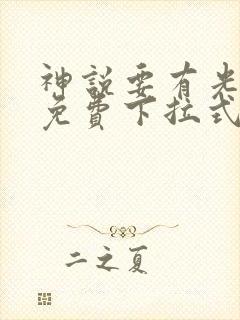 神説要有光
免費下拉式
二之夏